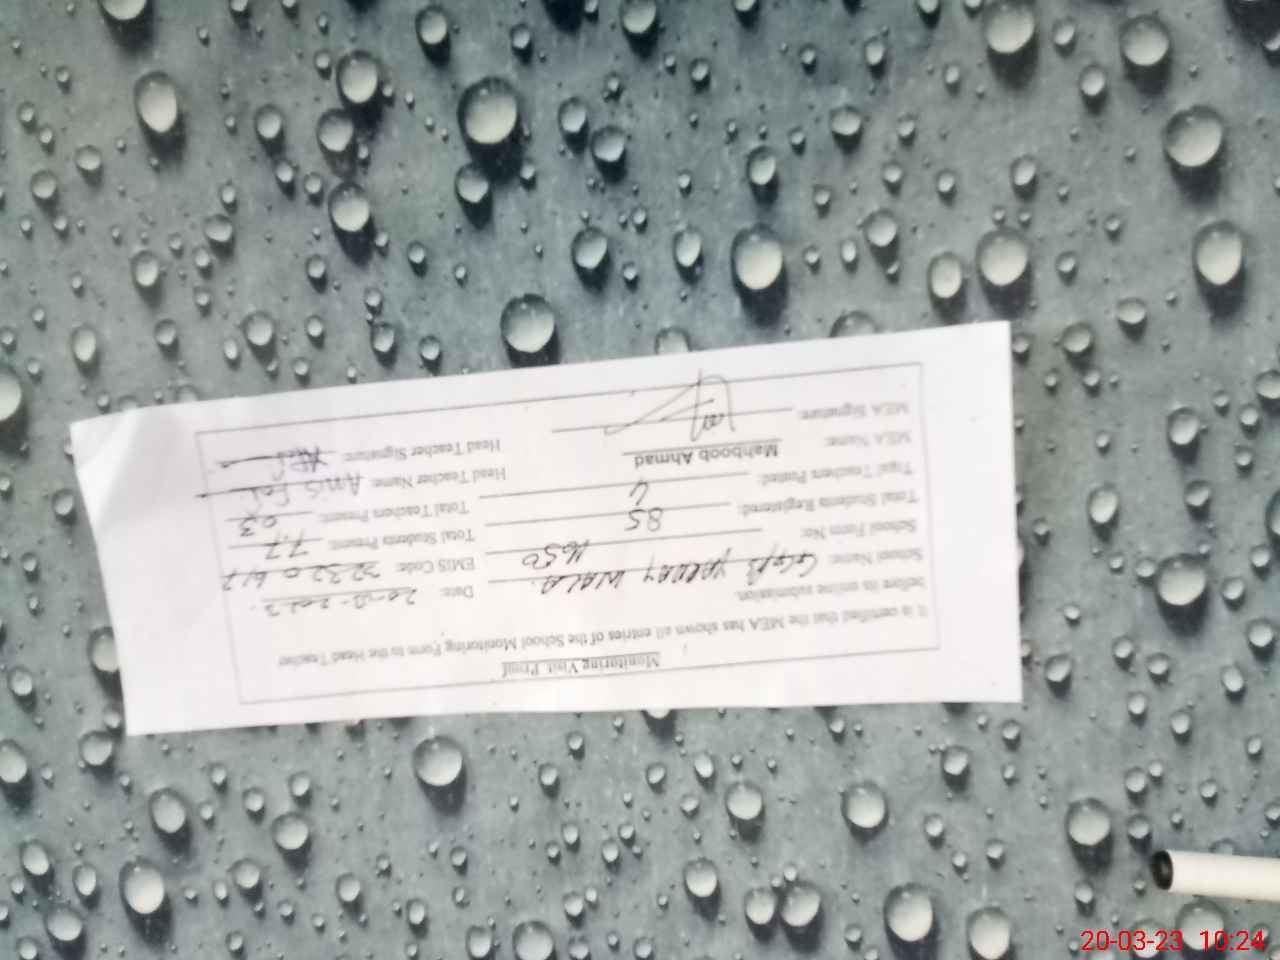 Monitoring Visit Proof
It is certified that the MEA has shown all entries of the School Monitoring Form to the Head Teacher
before its online submission.
Date: 20-03-2023.
School Name: WALA. EMIS Code:
School Form No: 1650 Total Students Present: 77
Total Students Registered: 85 Total Teachers Present: 03
Total Teachers Posted: 4 Head Teacher Name:
MEA Name: Mahboob Ahmad Head Teacher Signature:
MEA Signature:
20-03-23 10:24